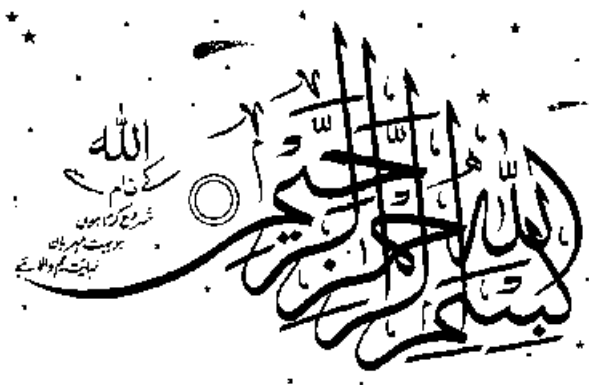 بسم الله الرحمن الرحيم
الله
کے نام
شروع کرتا ہوں
جو بہت مہربان
نہایت رحم والا ہے